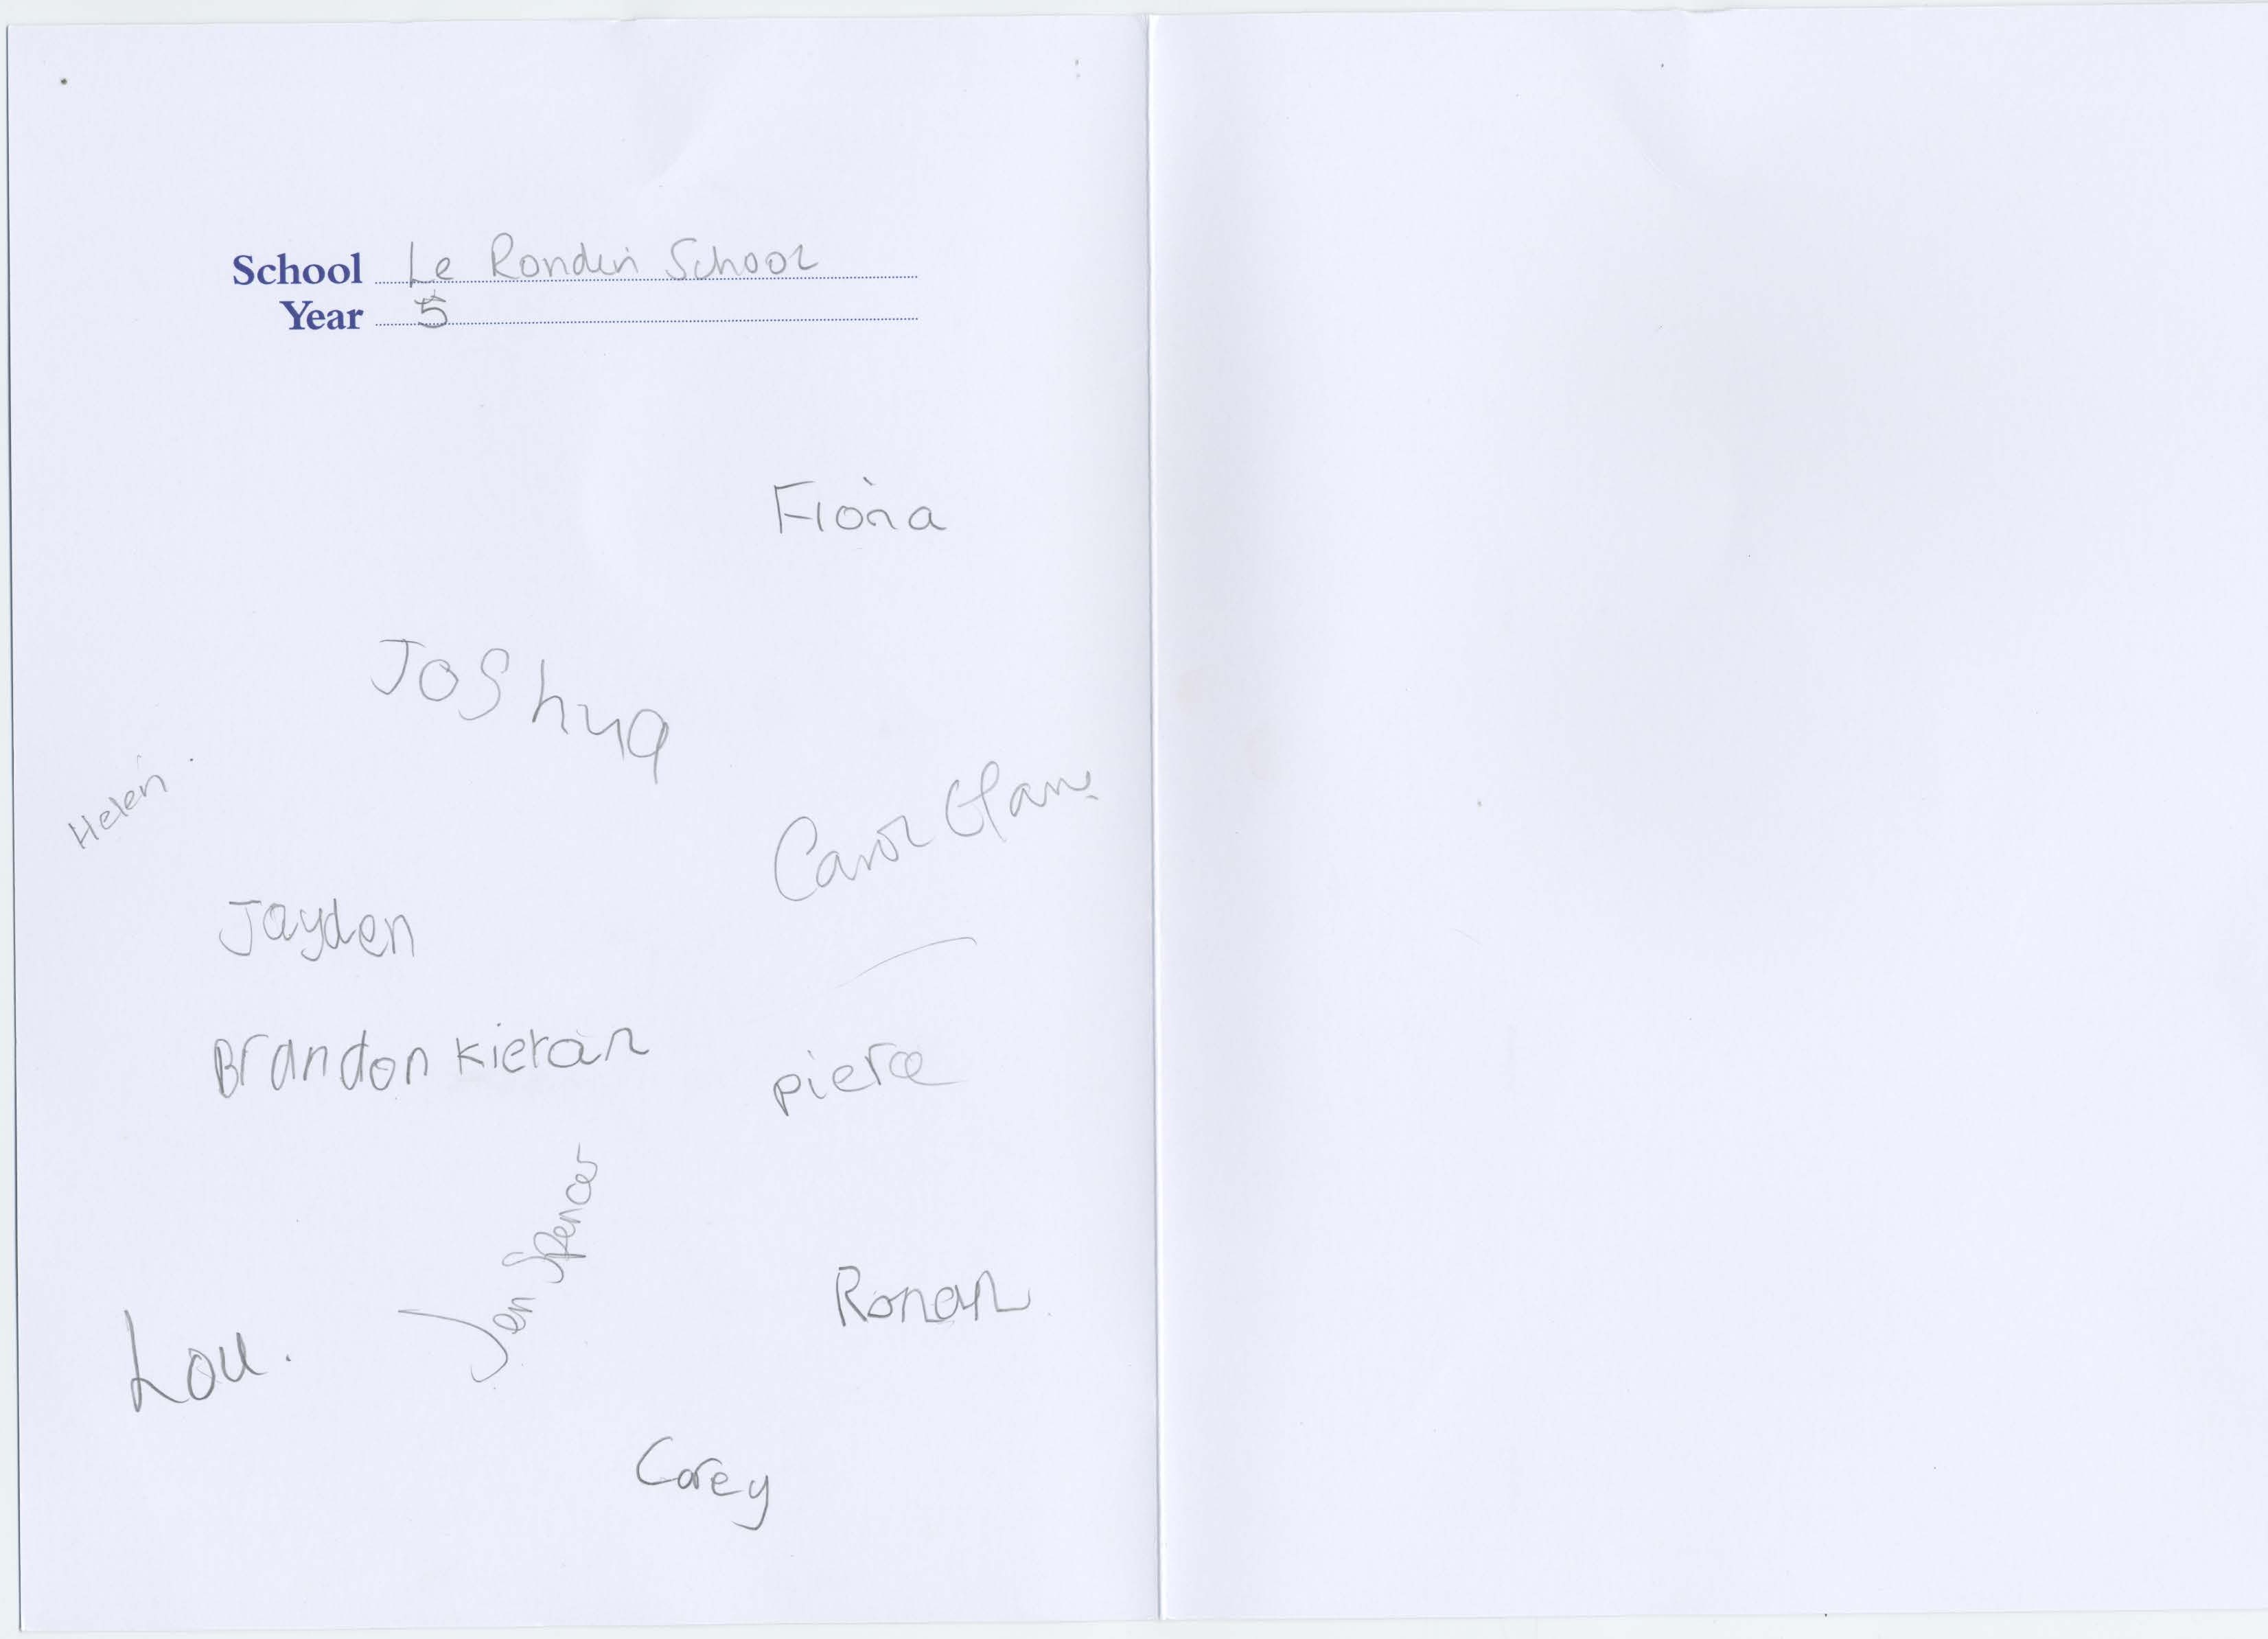 School Le Rondin School
Year 5
Fiona
Joshua
Helen.
Carol
Jayden
Brandon Kieran
pierce
Jen Spencer
Ronan
Lou.
Corey